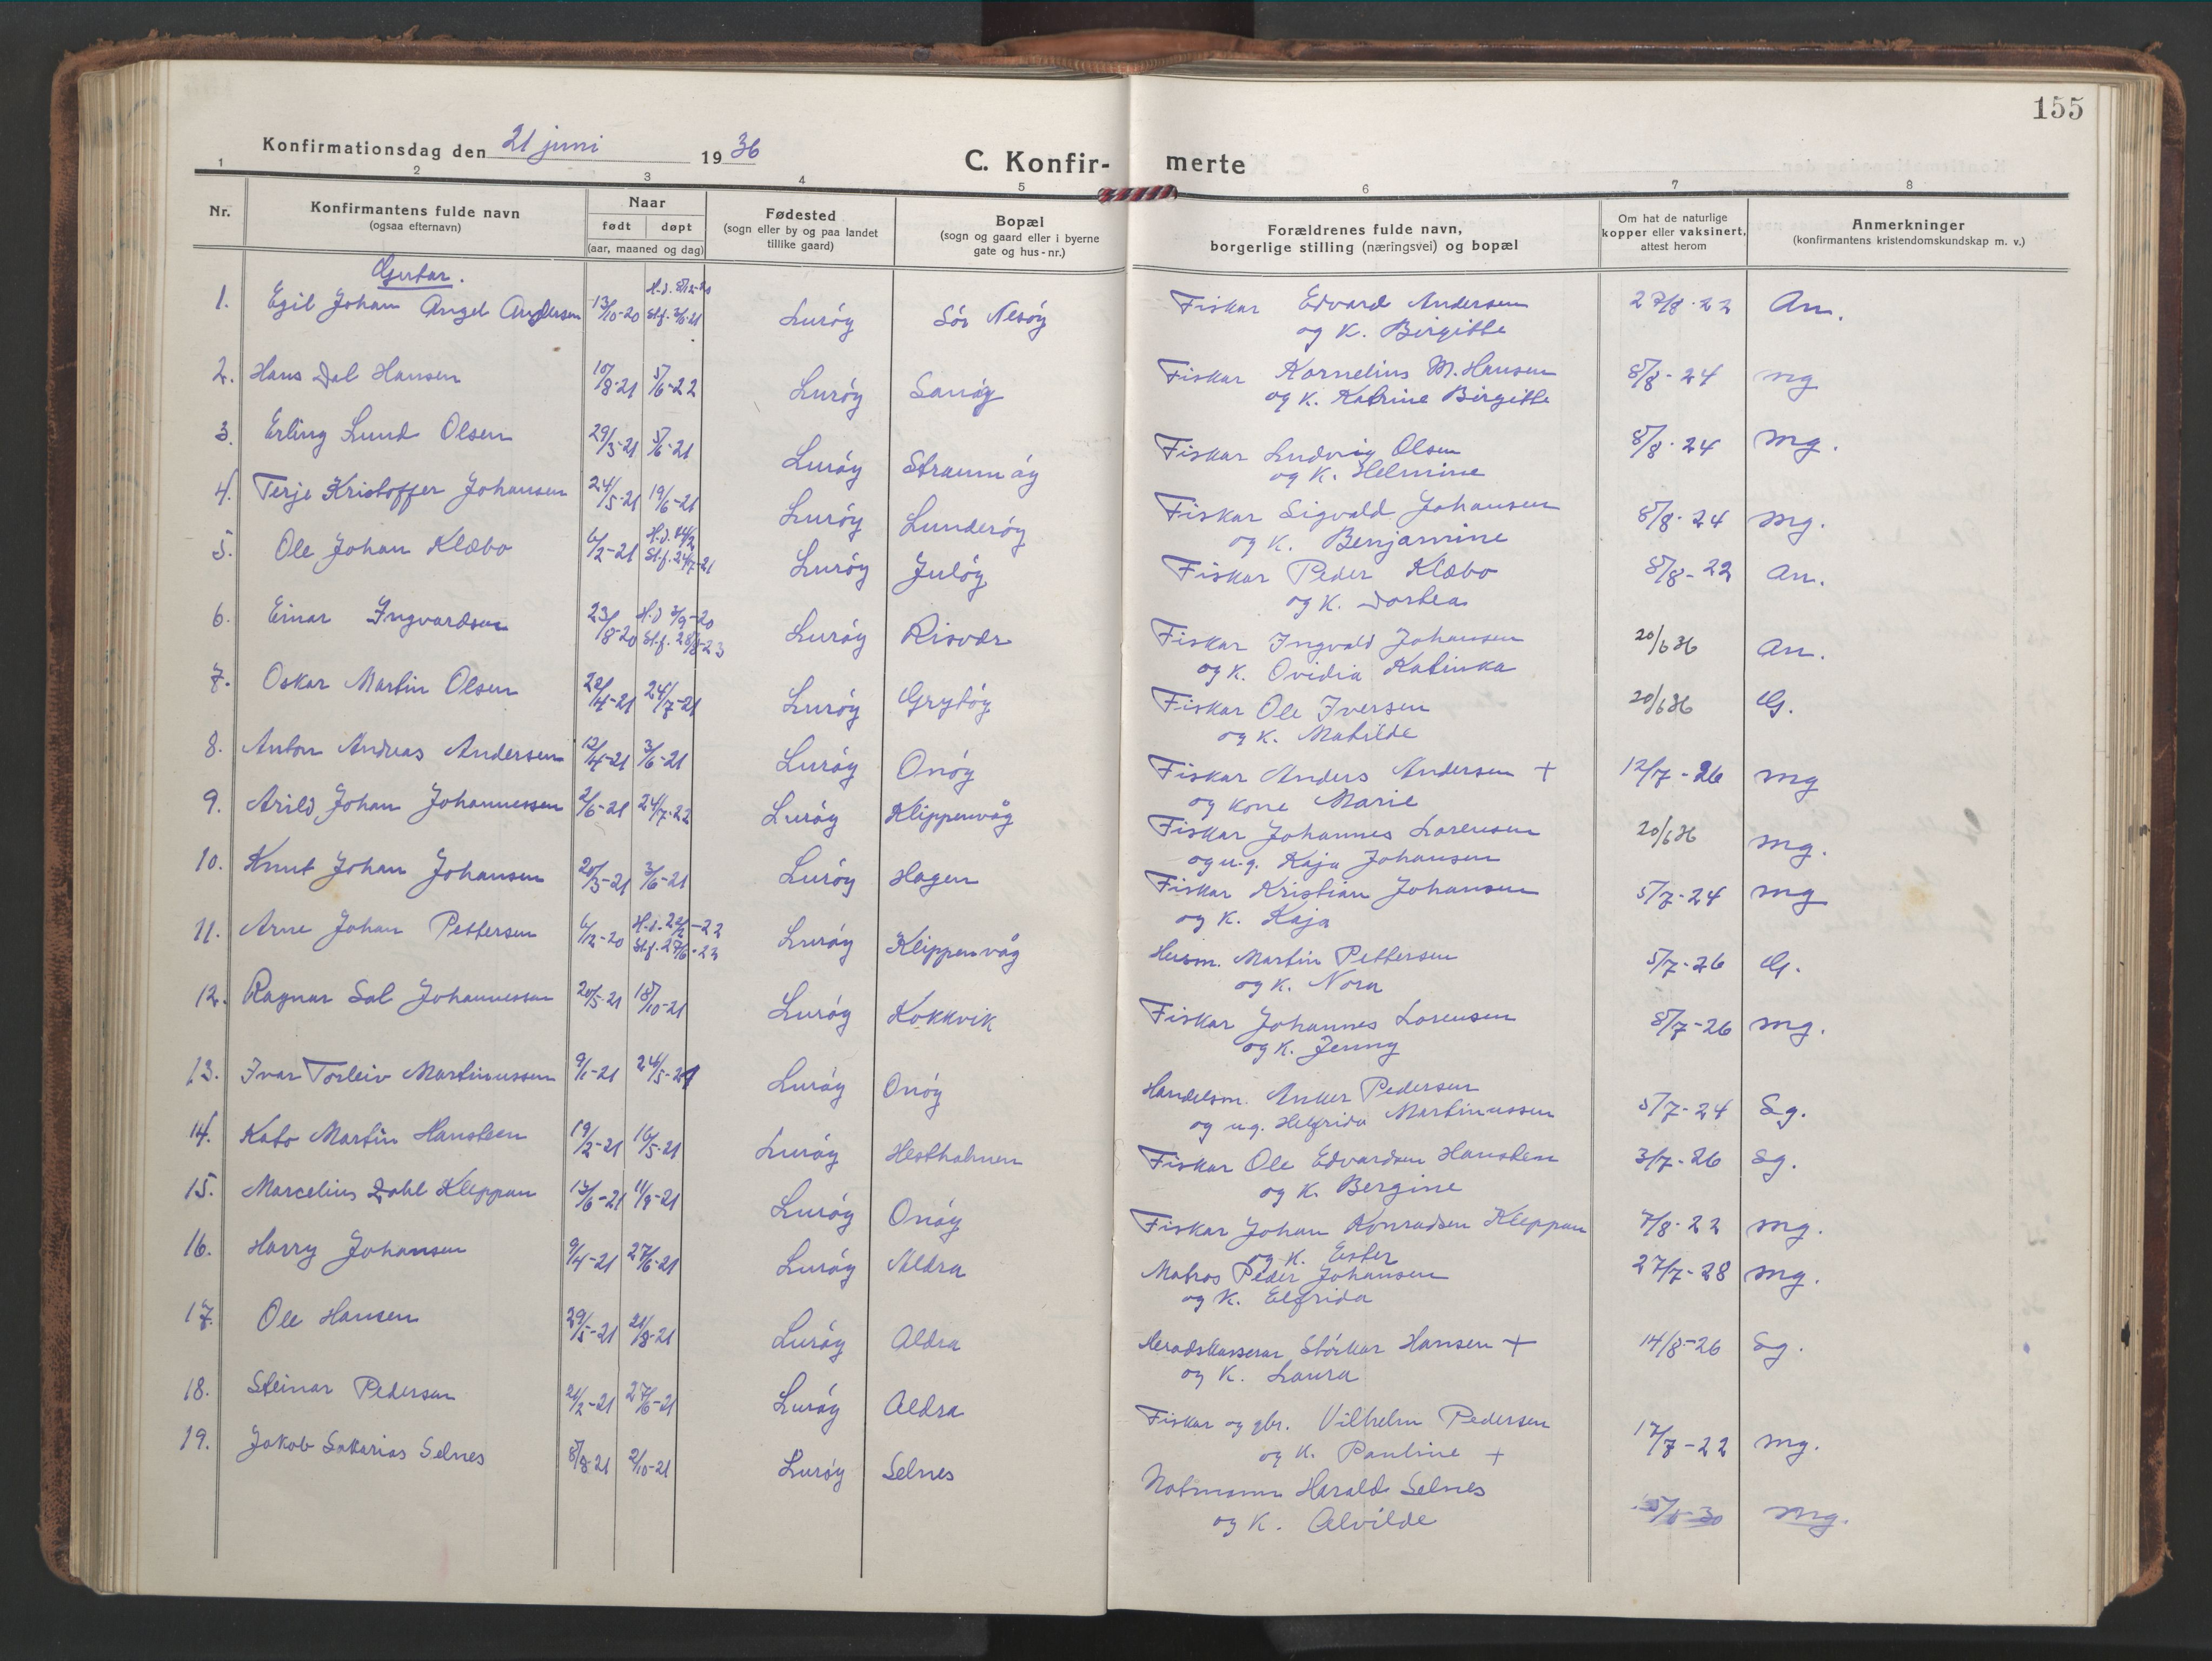 155
Konfirmationsdag den 21 juni 1936
C. Konfirmerte
1 2 3 4 5 6 7 8
Nr. | Konfirmantens fulde navn (ogsaa efternavn) | Naar født døpt (aar, maaned og dag) | Fødested (sogn eller by og paa landet tillike gaard) | Bopæl (sogn og gaard eller i byerne gate og hus-nr.) | Forældrenes fulde navn, borgerlige stilling (næringsvei) og bopæl | Om hat de naturlige kopper eller vaksinert, attest herom | Anmerkninger (konfirmantens kristendomskundskap m. v.)
Gutar.
1. Egil Johan Angel Andersen 13/10-20 H.d. 8/12-20 St.f. 3/6-21 Lurøy Sør Nesøy Fiskar Edvard Andersen og K. Birgitte 27/8-22 An.
2. Hans Dal Hansen 10/8-21 5/6-22 Lurøy Sanøy Fiskar Kornelius M. Hansen og K. Katrine Birgitte 8/8-24 mg
3. Erling Lund Olsen 29/3-21 5/6-21 Lurøy Straumøy Fiskar Ludvig Olsen og K. Helmine 8/8-24 mg.
4. Terje Kristoffer Johansen 24/5-21 19/6-21 Lurøy Lunderøy Fiskar Sigvald Johansen og K. Benjamine 8/8-24 mg.
5. Ole Johan Klæbo 6/2-21 H.d. 14/2 St.f. 24/7-21 Lurøy Juløy Fiskar Peder Klæbo og K. Dortea 8/8-22 An.
6. Einar Ingvardsen 23/8-20 H.d 3/9-20 St.f. 28/8-23 Lurøy Risvær Fiskar Ingvald Johansen og K. Ovidia Katinka 20/6 36 An.
7. Oskar Martin Olsen 22/4-21 24/7-21 Lurøy Grytøy Fiskar Ole Iversen og K. Matilde 20/6 36 G.
8. Anton Andreas Andersen 12/4-21 3/6-21 Lurøy Onøy Fiskar Anders Andersen + og kone Marie 12/7-26 mg
9. Arild Johan Johannessen 2/6-21 24/7-22 Lurøy Klippenvåg Fiskar Johannes Lorensen og u.g. Kaja Johansen 20/6 36 mg.
10. Knut Johan Johansen 20/3-21 3/6-21 Lurøy Hagen Fiskar Kristian Johansen og K. Kaja 5/7-24 mg
11. Arne Johan Pettersen 6/12-20 H.d. 22/2-22 St.f. 27/6-23 Lurøy Klippenvåg Husm. Martin Pettersen og K. Nora 5/7-26 G.
12. Ragnar Sal Johannessen 20/5-21 18/10-21 Lurøy Kokkvik Fiskar Johannes Lorensen og K. Jenny 8/7-26 mg.
13. Ivar Torleiv Martinussen 9/1-21 24/5-21 Lurøy Onøy Handelsm. Anker Pedersen og u.g. Helfrida Martinussen 5/7-24 Sg.
14. Kato Martin Hansteen 19/2-21 16/5-21 Lurøy Hestholmen Fiskar Ole Edvardsen Hansteen og K. Bergine 3/7-26 Sg.
15. Marcelius Zahl Kleppan 13/6-21 11/9-21 Lurøy Onøy Fiskar Johan Konradsen Kleppan og K. Ester 7/8-22 mg.
16. Harry Johansen 9/4-21 27/6-21 Lurøy Aldra Matros Peder Johansen og K. Elfrida 27/7-28 mg.
17. Ole Hansen 29/5-21 21/8-21 Lurøy Aldra Heradskasserar Størkar Hansen + og K. Laura 14/8-26 Sg.
18. Steinar Pedersen 21/2-21 27/6-21 Lurøy Aldra Fiskar og gbr. Vilhelm Pedersen og K. Pauline + 17/7-22 mg.
19. Jakob Sakarias Selnes 8/8-21 2/10-21 Lurøy Selnes Notmann Harald Selnes og K. Alvilde mg.